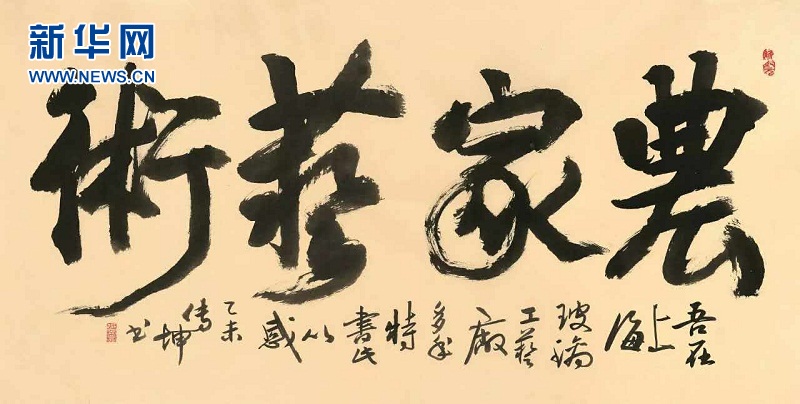 新华网
WWW.NEWS.CN
農家藝術
吾在
上
海
玻璃
工藝
廠
多年
特
書此
以
感
乙未
傳坤
书